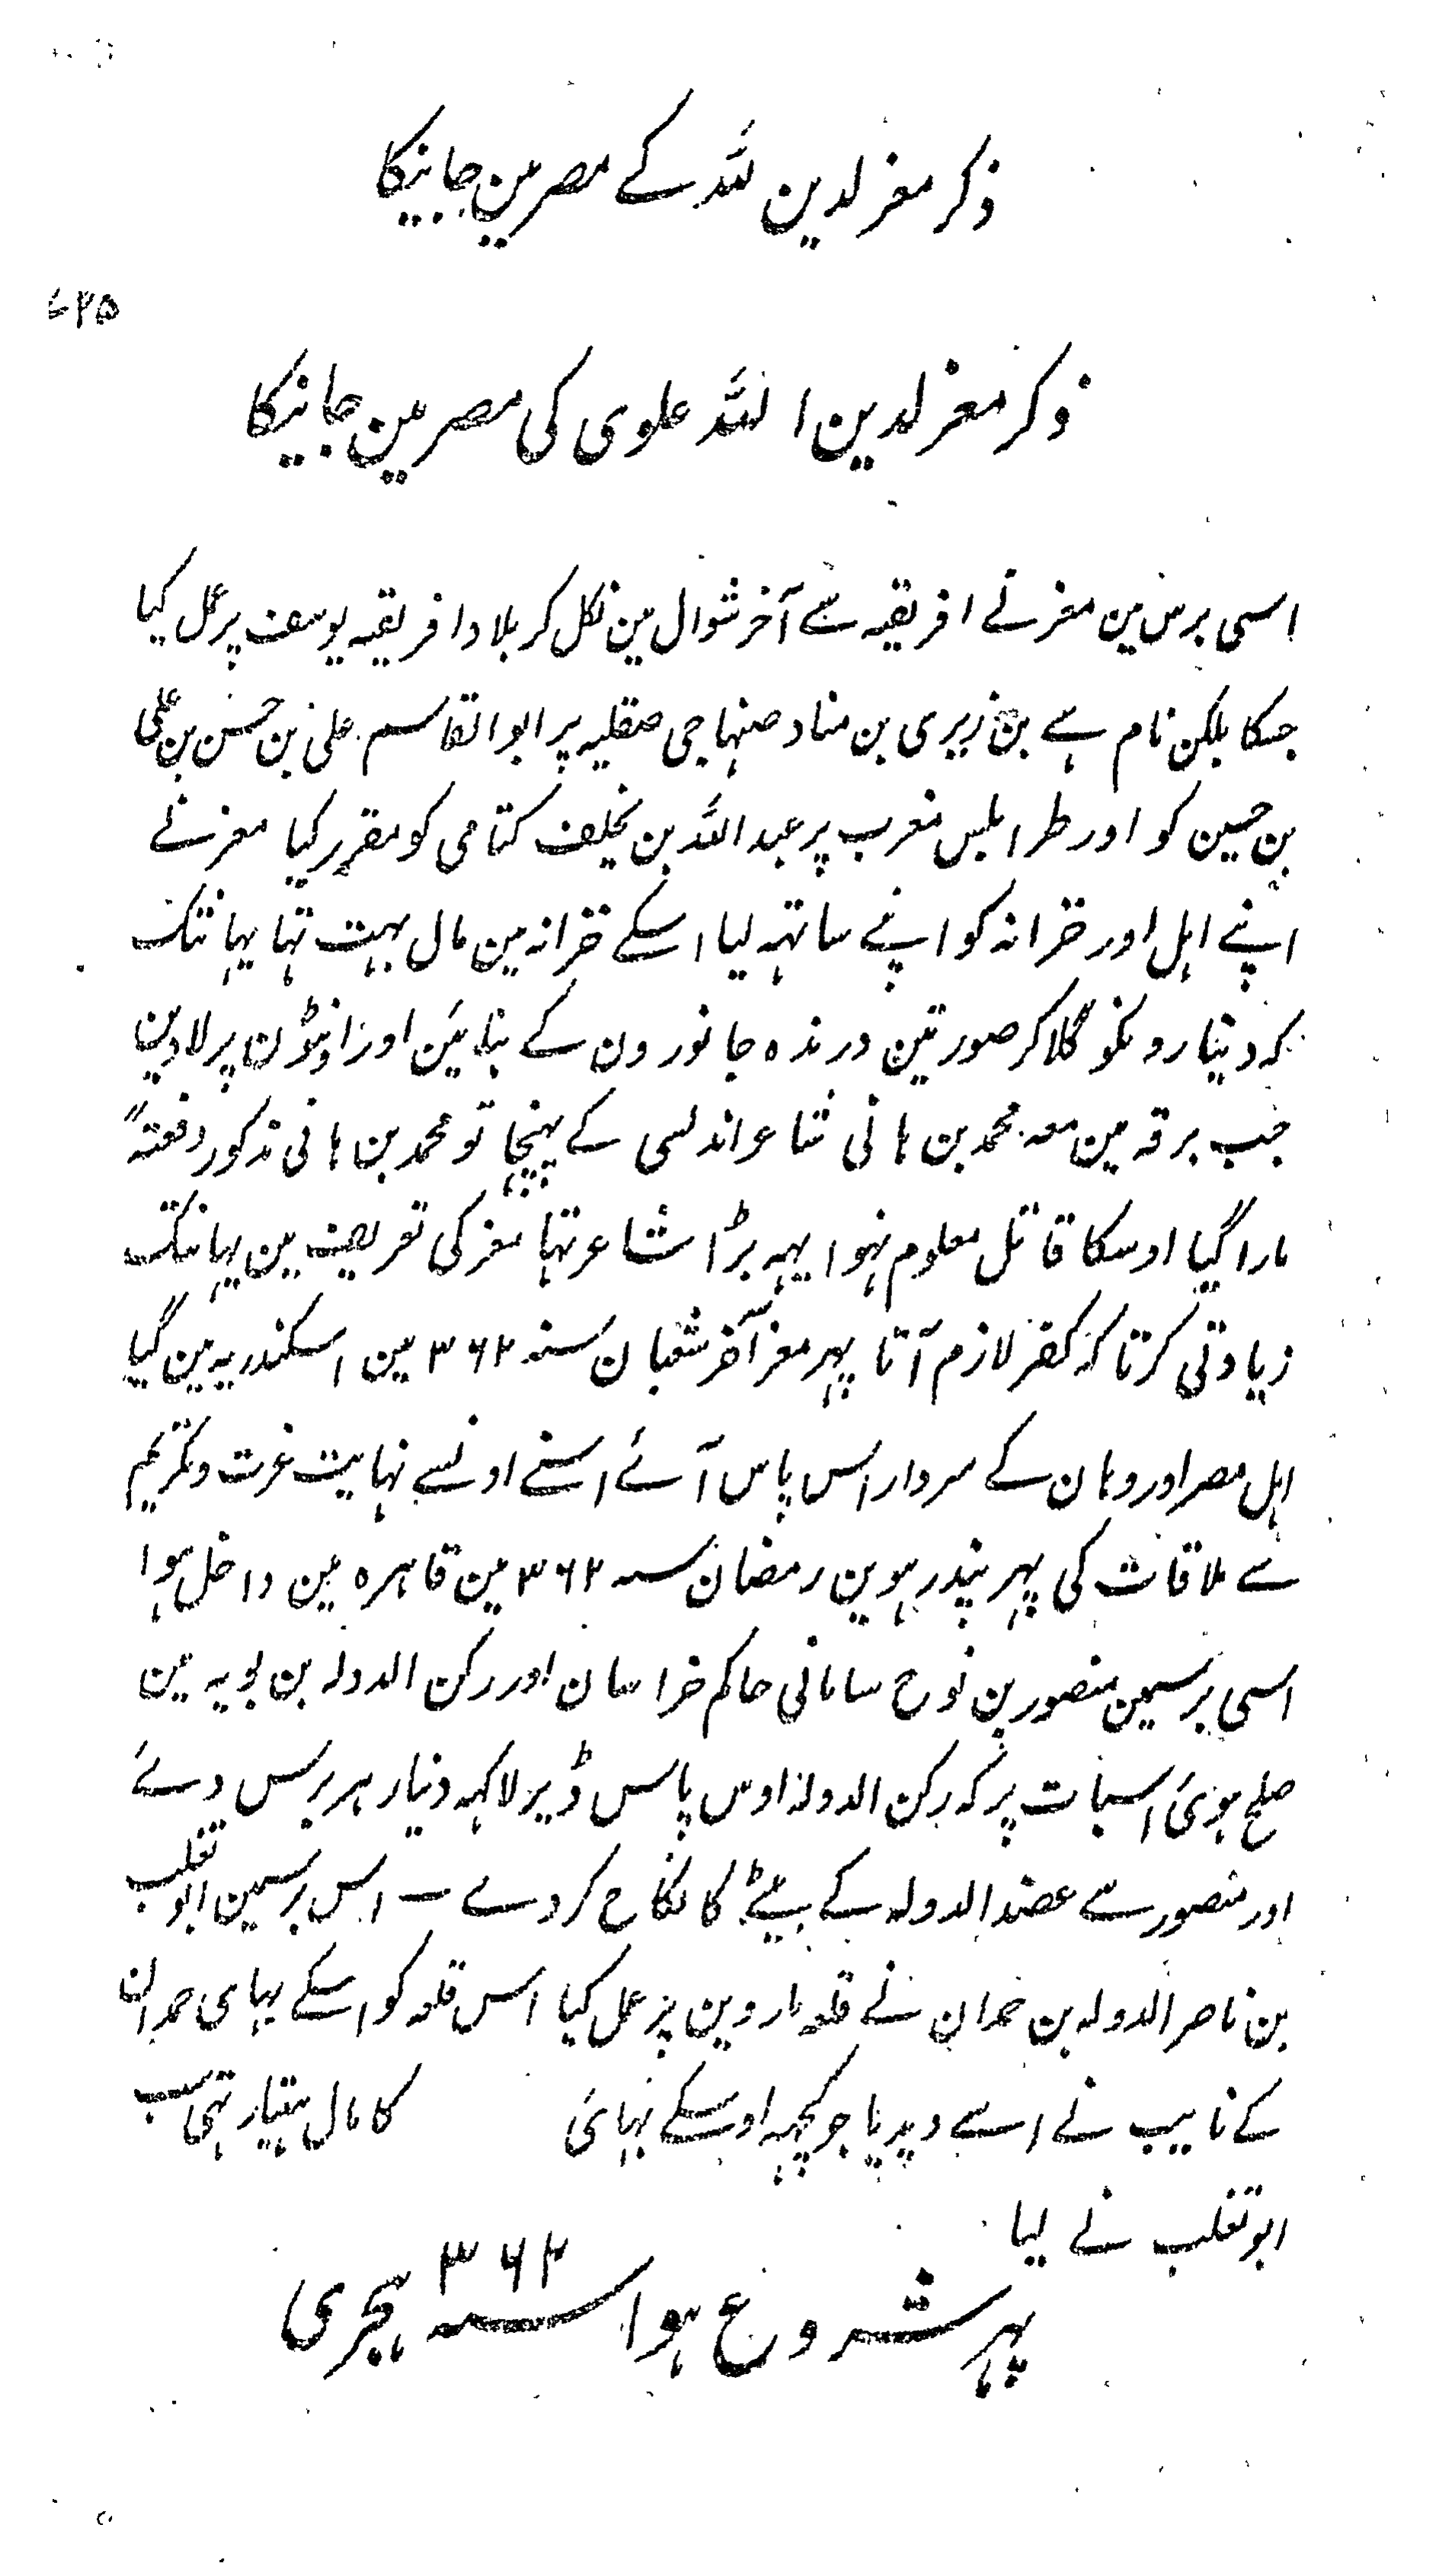 ذکر معز لدین للہ کے مصر مین جانیکا
۷۳۵
ذکر معز لدین اللہ علوی کی مصر مین جانیکا
اسی برس مین معز نے افریقہ سے آخر شوال مین نکل کر بلاد افریقیہ یوسف پر عمل کیا
جسکا بلکن نام ہے بن زیری بن مناد صنہاجی صقلیہ پر ابو القاسم علی بن حسن بن علی
بن حسین کو اور طرابلس مغرب پر عبد اللہ بن یخلف کتامی کو مقرر کیا معز نے
اپنے اہل اور خزانہ کو اپنے ساتہہ لیا اسکے خزانہ مین مال بہت تہا یہانتک
کہ دینارونکو گلا کر صورتین درندہ جانورون کے بنائین اور اونٹون پر لادین
جب برقہ مین معہ محمد بن ہانی شاعر اندلسی کے پہنچا تو محمد بن ہانی مذکور دفعتہً
مارا گیا اوسکا قاتل معلوم نہوا یہہ بڑا شاعر تہا معز کی تعریف مین یہانتک
زیادتی کرتا کہ کفر لازم آتا پہر معز آخر شعبان سنہ ۳۶۲ مین اسکندریہ مین گیا
اہل مصر اور وہان کے سردار اس پاس آئے اسنے اونسے نہایت عزت و تکریم
سے ملاقات کی پہر پندرہوین رمضان سنہ ۳۶۲ مین قاہرہ مین داخل ہوا
اسی برسمین منصور بن نوح سامانی حاکم خراسان اور رکن الدولہ بن بویہ مین
صلح ہوئی اسبات پر کہ رکن الدولہ اوس پاس ڈیرلاکہہ دنیار ہر برس دے
اور منصور سے عضد الدولہ کے بیٹے کا نکاح کردے ـ اس برسمین ابو تغلب
بن ناصر الدولہ بن حمدان نے قلعہ ماروین پر عمل کیا اس قلعہ کو اسکے بہای حمدان
کے نایب نے اسے دیدیا جو کچہہ اوسکے بہائی کا مال ہتیار تہی سب
ابو تغلب نے لیا
پہر شروع ہوا سنہ ۳۶۲ ہجری